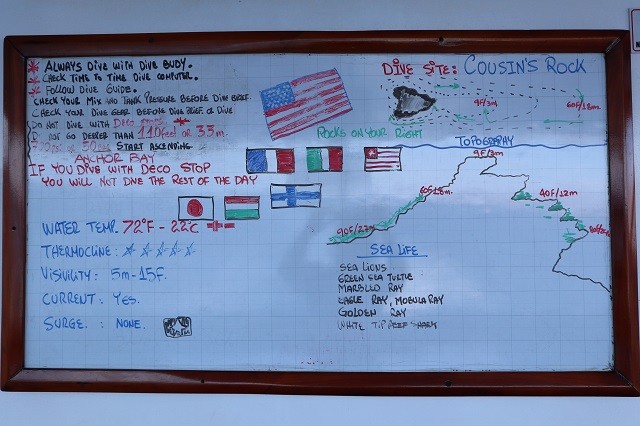 * ALWAYS DIVE WITH DIVE BUDY.
* CHECK TIME TO TIME DIVE COMPUTER.
* FOLLOW DIVE GUIDE.
CHECK YOUR MIX AND TANK PRESSURE BEFORE DIVE BRIEF
CHECK YOUR DIVE GEAR BEFORE DIVE BRIEF OR DIVE
DO NOT DIVE WITH DECO
DO NOT GO DEEPER THAN 110 feet OR 33m.
START ASCENDING
ANCHOR BAY
IF YOU DIVE WITH DECO STOP
YOU WILL NOT DIVE THE REST OF THE DAY
WATER TEMP. 72°F - 22°C
THERMOCLINE :
VISIVILITY : 5m-15F.
CURRENT : YES.
SURGE. : NONE.
DIVE SITE: COUSIN'S ROCK
9F/3m
60F/18m.
ROCKS ON YOUR RIGHT
TOPOGRAPHY
9F/3m
60F/18m.
40F/12m
90F/27m
SEA LIFE
SEA LIONS
GREEN SEA TURTLE
MARBLLO RAY
EAGLE RAY, MOBULA RAY
GOLDEN RAY
WHITE TIP REEF SHARK